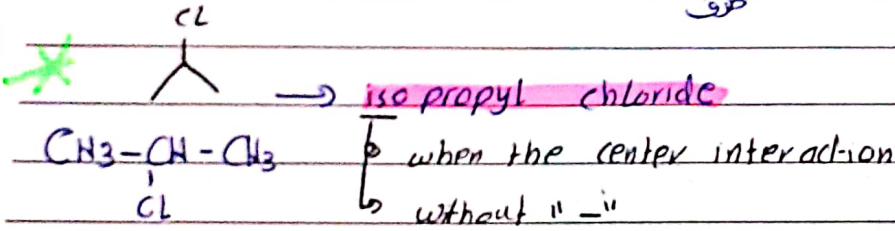 CL
→ iso propyl chloride
CH3-CH-CH3 when the center interaction
CL without "_"